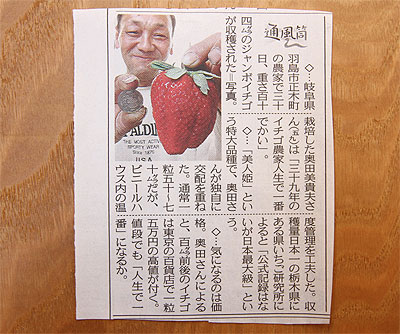 通風筒
◇…岐阜県
羽島市正木町
の農家で三十
日、重さ百十
四㌘のジャンボイチゴ
が収穫された＝写真。
栽培した奥田美貴夫さ
ん は「三十九年の
イチゴ農家人生で一番
でかい」。
◇…「美人姫」とい
う特大品種で、奥田さ
んが独自に
交配を重ね
た。通常一
粒五十〜七
十㌘だが、
ビニールハ
ウス内の温
度管理を工夫した。収
穫量日本一の栃木県に
ある県いちご研究所に
よると「公式記録はな
いが日本最大級」とい
う。
◇…気になるのは価
格。奥田さんによる
と、百㌘前後のイチゴ
は東京の百貨店で一粒
五万円の高値が付く。
値段でも「人生で一
番」になるか。
ALDI
THE MOST ACTI
SPORTY WEAR
USA